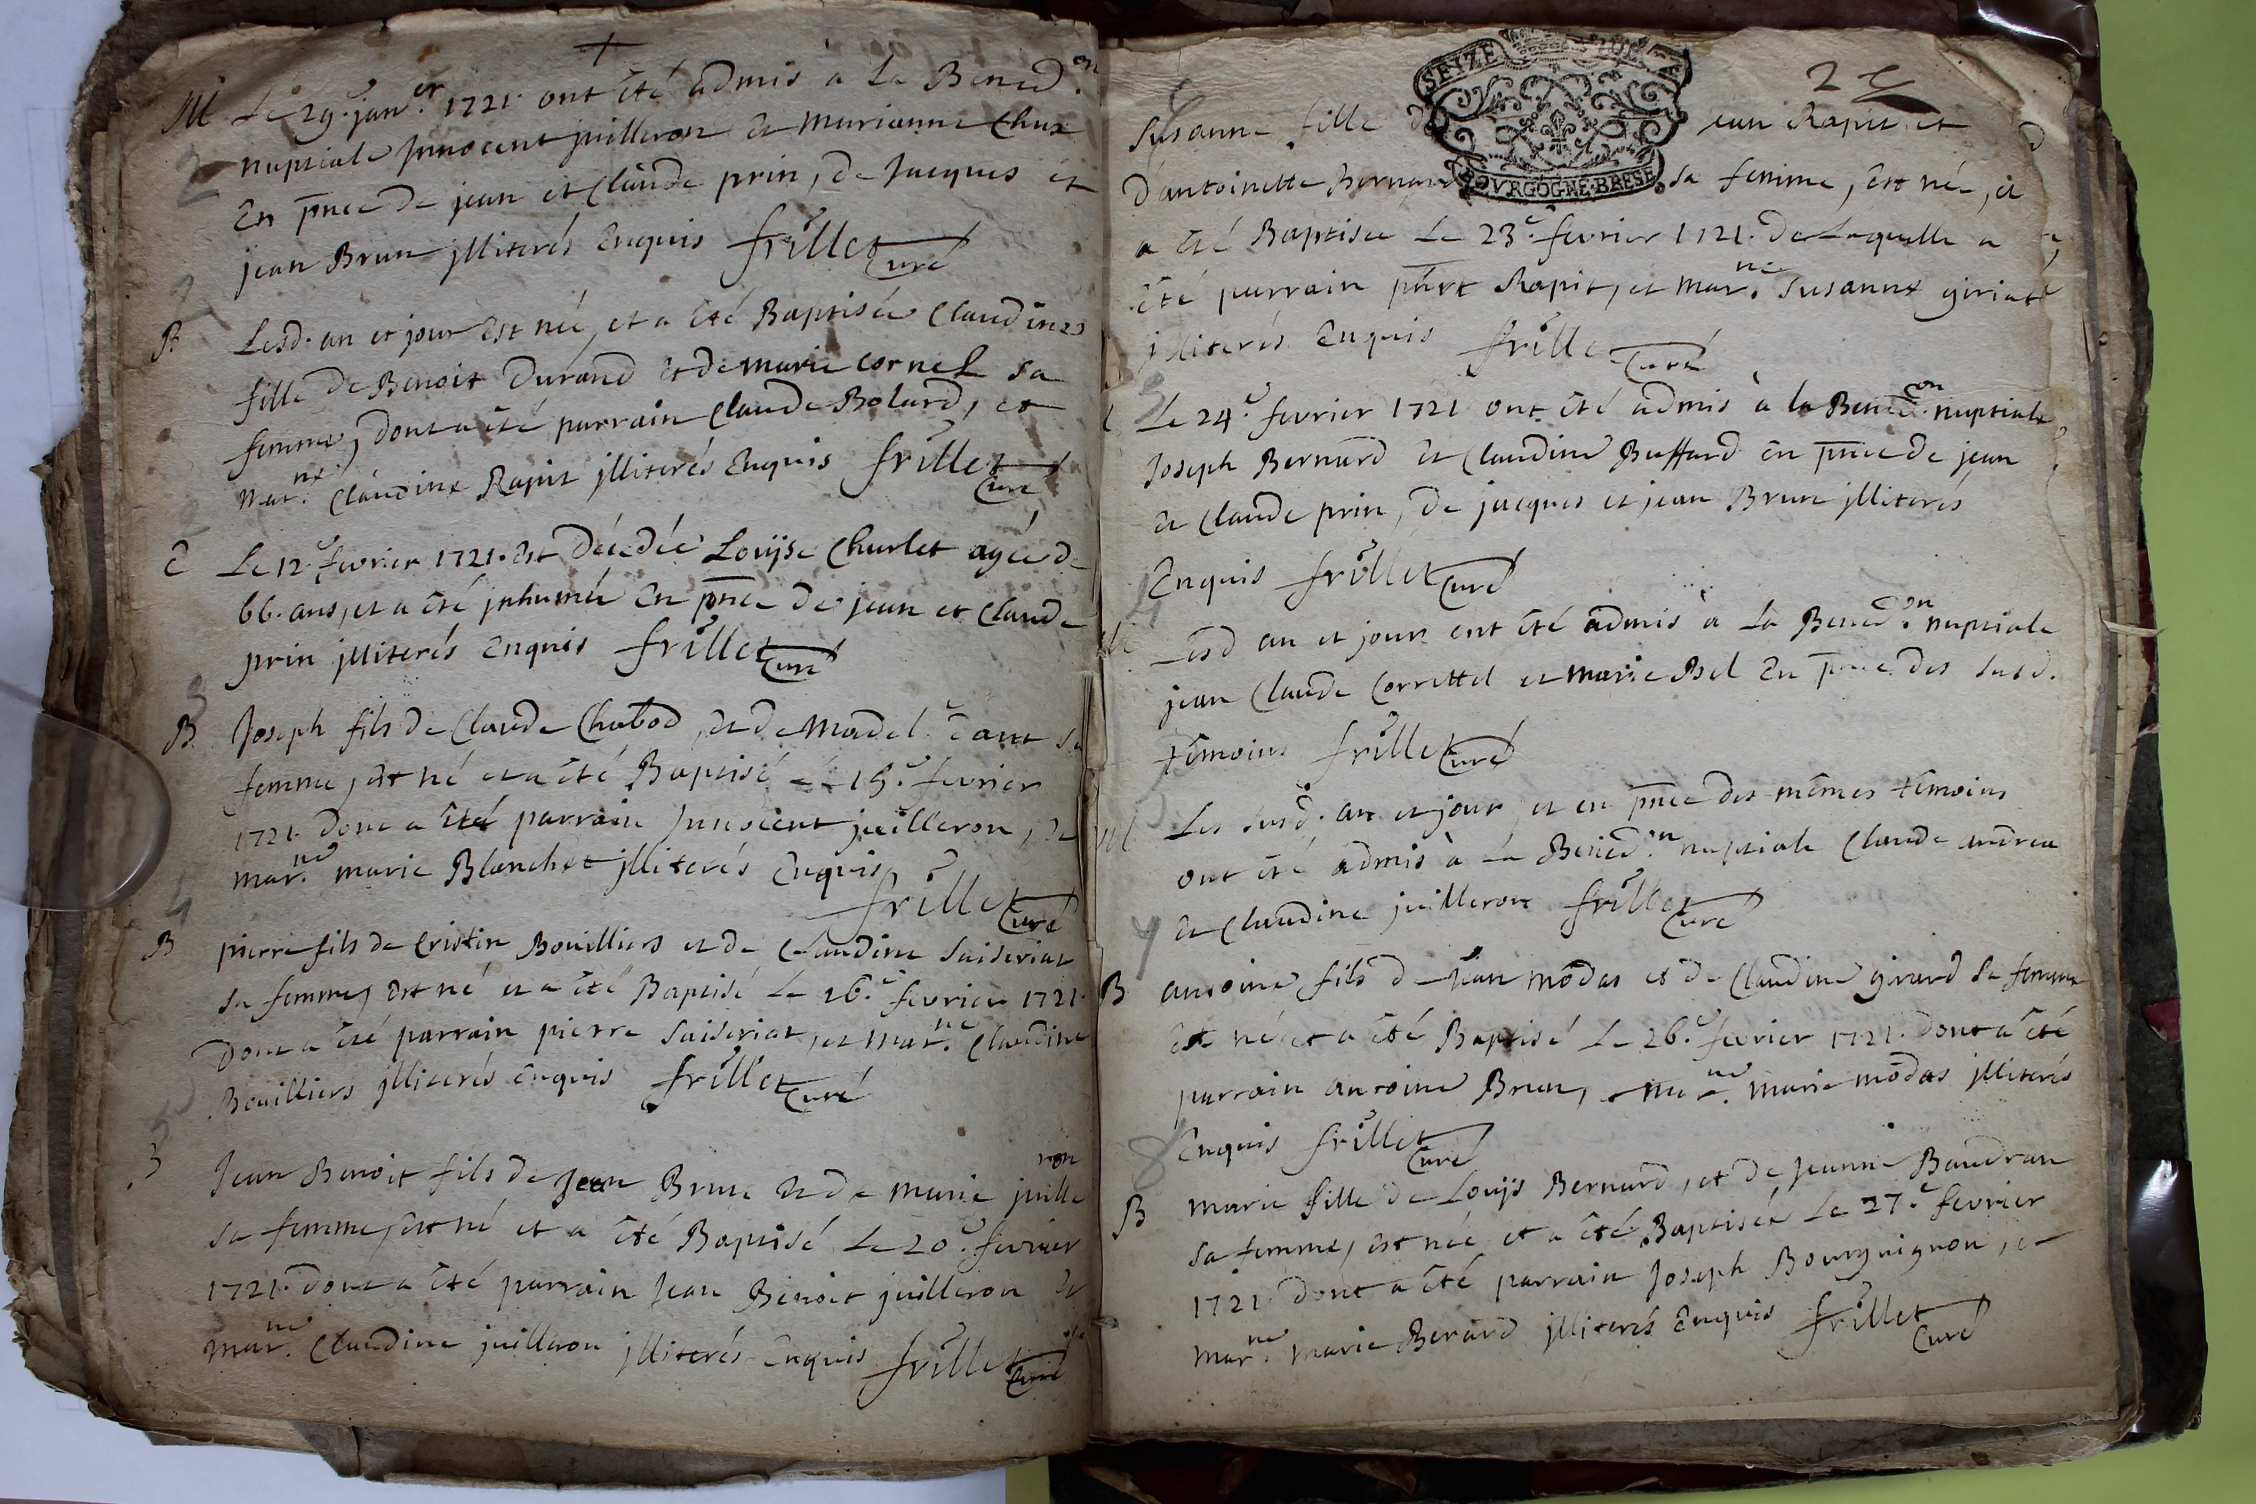 M Le 29. janer. 1721. ont été admis a La Bened.on
nuptiale Jnnocent juilleron et marianne Chux
En pnce de jean et Claude prin, de Jacques et
jean Brun jlliterés Enquis frillet Curé
B Lesd. an et jour Est née, et a été Baptisée Claudine
fille de Benoit Durand et de marie Cornel Sa
femme, dont a été parrain Claude Bolard, et
mar.ne Claudine Rapit jlliterés Enquis frillet Curé
Le 12.e fevrier 1721. Est décedée Loüjse Churlet agée de
66. ans, et a été jnhumée En pnce de jean et Claude
prin jlliterés Enquis frillet Curé
B Joseph fils de Claude Chabod, et de Madel.e
femme, Est né et a été Baptisé Le 15.e fevrier
1721. dont a été parrain Jnnocent juilleron, et
mar.ne marie Blanchet jlliterés Enquis
frillet Curé
B pierre fils de Cristin Bouilliers et de Claudine Saiseriat
Sa femme, Est né et a été Baptisé Le 16.e fevrier 1721.
Dont a été parrain pierre Saiseriat, et mar.ne Claudine
Bouilliers jlliterés Enquis frillet Curé
B Jean Benoit fils de Jean Brun et de marie juilleron
Sa femme, Est né et a été Baptisé Le 20.e fevrier
1721. dont a été parrain Jean Benoit juilleron et
mar.ne Claudine juilleron jlliterés Enquis frillet Curé
SEIZE
BOVRGOGNE BRESE
2 e
Susanne fille de jean Rapit et
d'antoinette Bernard Sa femme, Est née, et
a été Baptisée Le 23.e fevrier 1721. de Laquelle a
été parrain Rapit, et mar.ne Susanne giriat
jlliterés Enquis frillet Curé
Le 24.e fevrier 1721 ont été admis à la Bened.on nuptiale
Joseph Bernard et Claudine Buffard En pnce de jean
et Claude prin, de jacques et jean Brun jlliterés
Enquis frillet Curé
Lesd an et jour ont été admis à La Bened.on nuptiale
jean Claude Correttel et marie Bel En pnce des Susd.
témoins frillet Curé
Les susd. an et jour, et en pnce des mêmes témoins
ont été admis à La Bened.on nuptiale Claude andrea
et Claudine juilleron frillet Curé
B antoine fils de jean modas et de Claudine girard Sa femme
Est né et a été Baptisé Le 26.e fevrier 1721. dont a été
parrain antoine Brun, et mar.ne marie modas jlliterés
Enquis frillet Curé
B marie fille de Loüjs Bernard, et de jeanne Baudran
Sa femme, Est née et a été Baptisée Le 27.e fevrier
1721. dont a été parrain Joseph Bourguignon, et
mar.ne marie Berard jlliterés Enquis frillet Curé